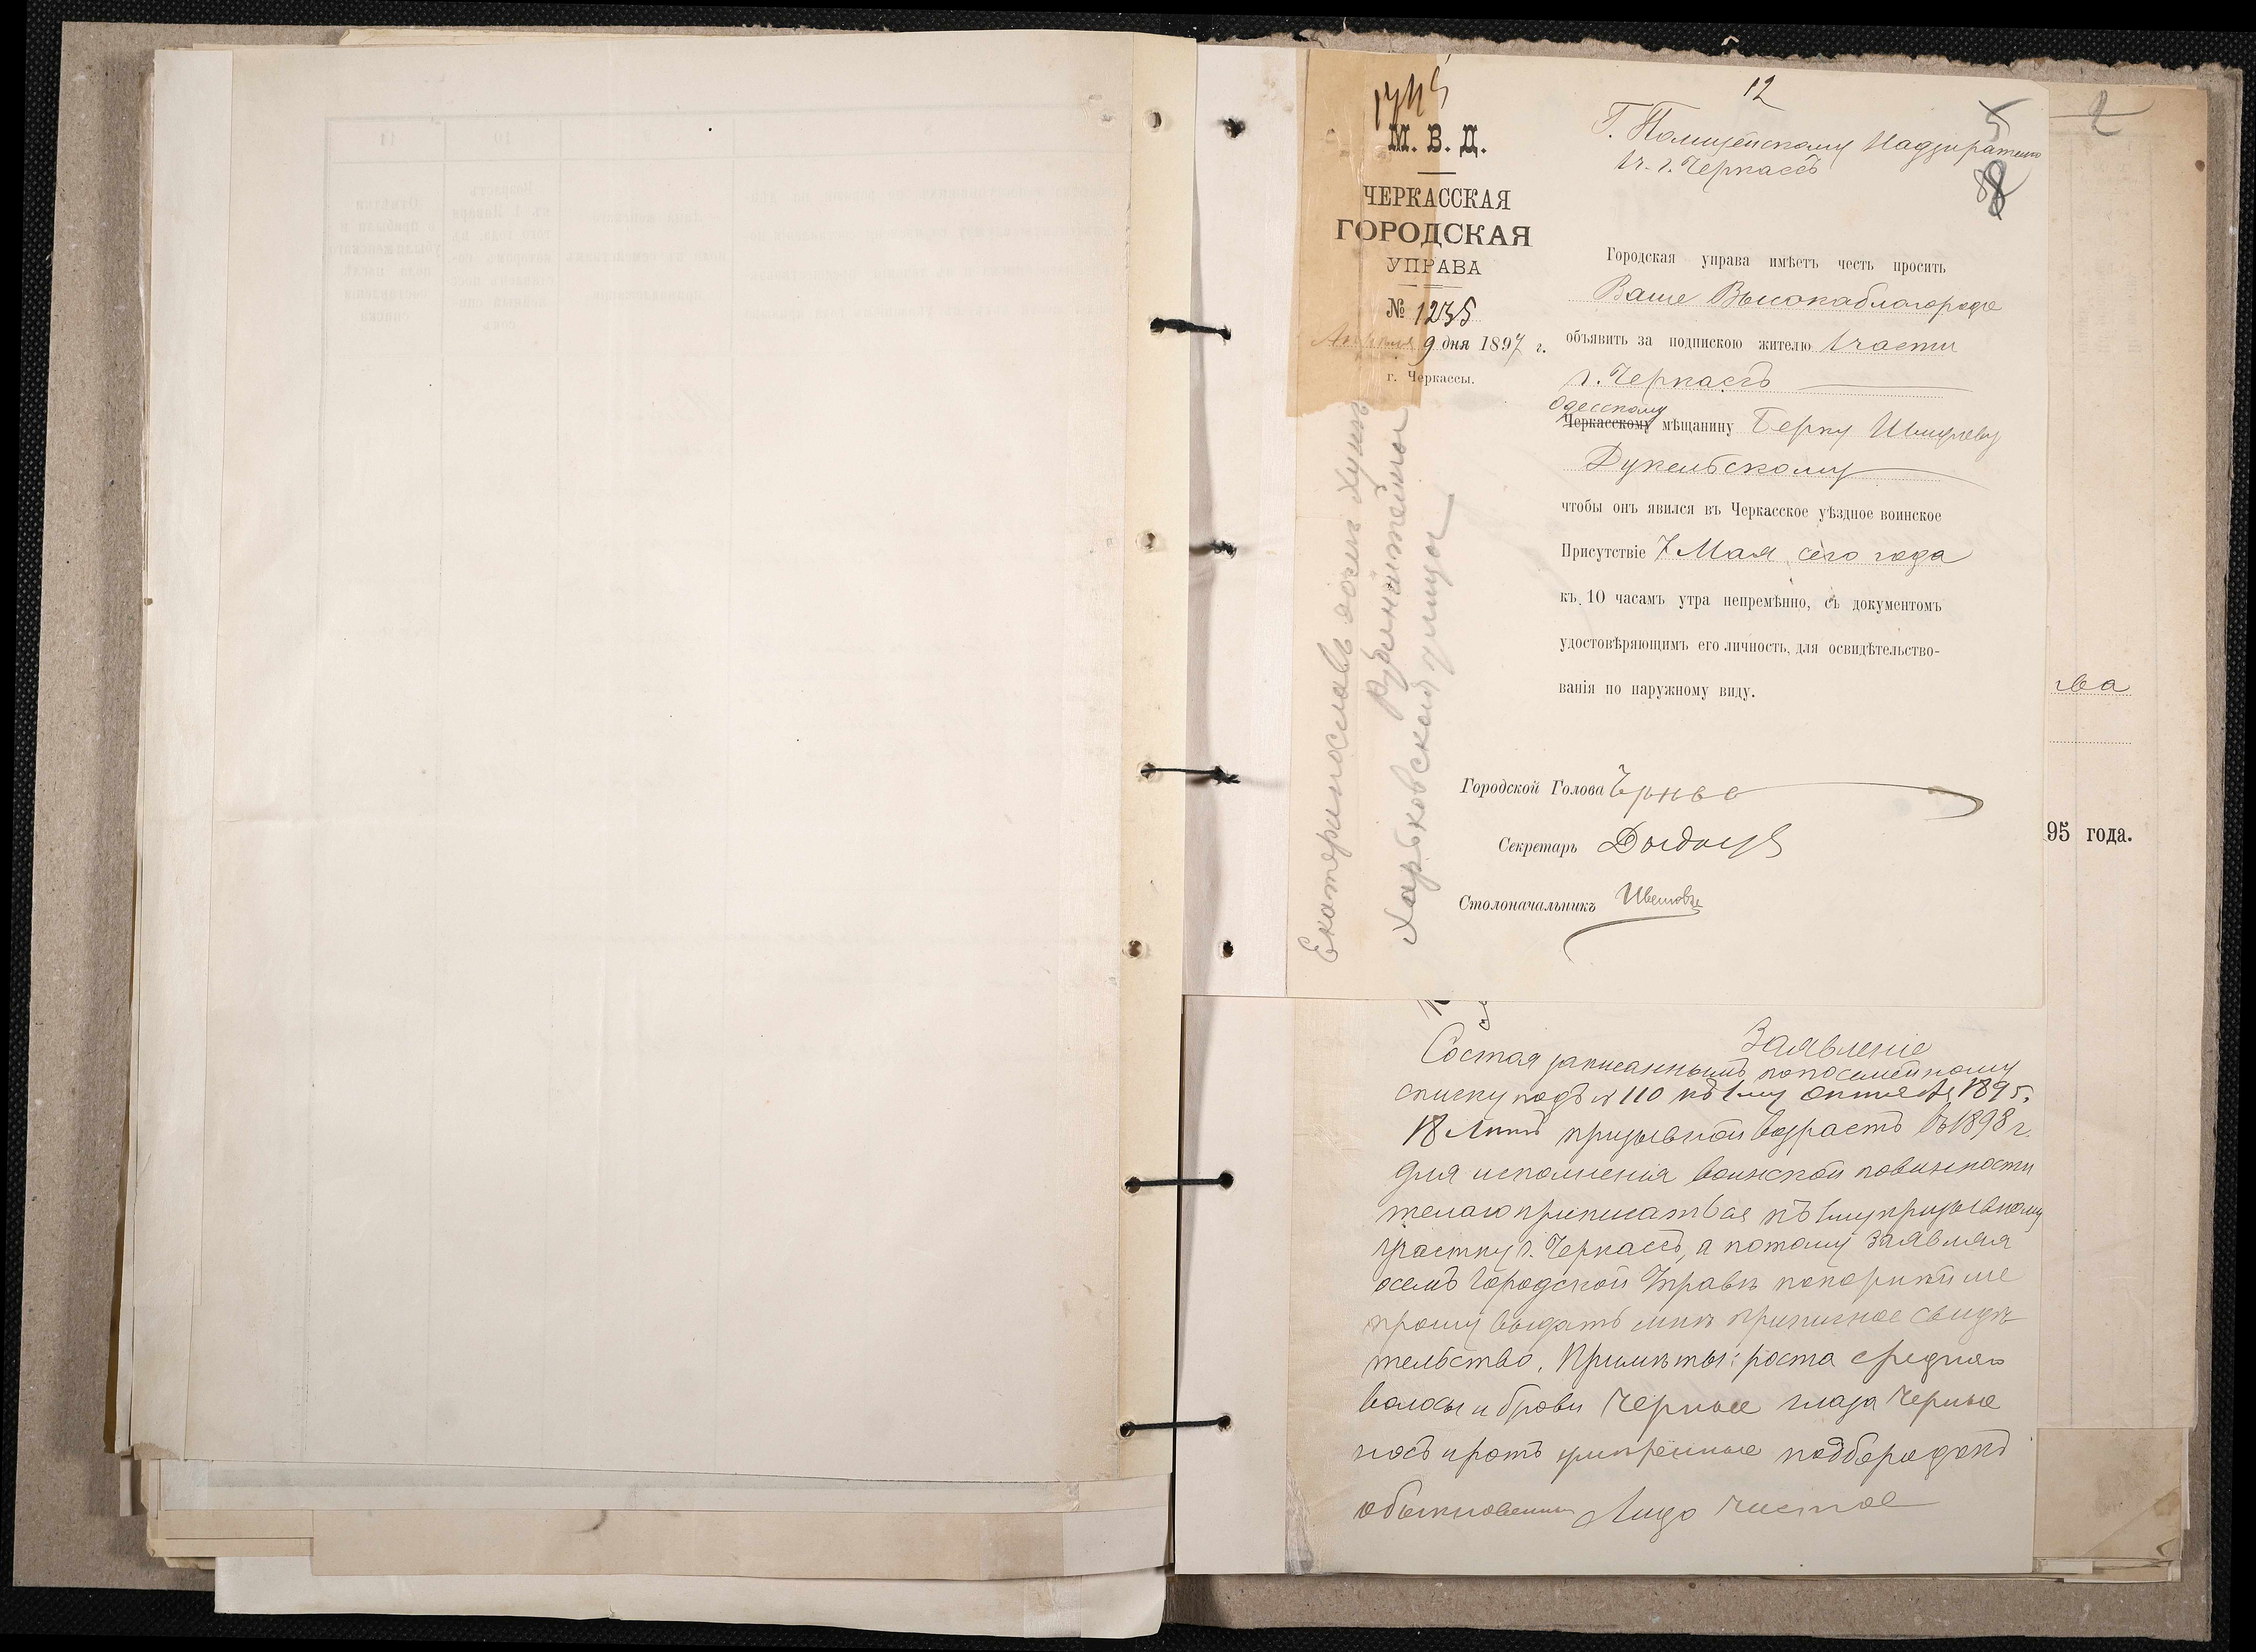 12
5
8
М. В. Д.
ЧЕРКАССКАЯ
ГОРОДСКАЯ
УПРАВА
№ 1235
Апреля 9 дня 1897 г.
г. Черкассы.
Г. Полицейскому Надзирателю
1ч. г. Черкассъ
Городская управа имѣетъ честь просить
Ваше Высокаблагородіе
объявить за подпискою жителю 1 части
г. Черкассъ
Одесскому
Черкасскому мѣщанину Берку
Дукельскому
чтобы онъ явился въ Черкасское уѣздное воинское
Присутствіе 7 Мая сего года
къ 10 часамъ утра непремѣнно, съ документомъ
удостовѣряющимъ его личность, для освидѣтельство-
ванія по наружному виду.
Городской Голова
Секретарь
Столоначальникъ
Екатеринославъ
Харьковской улицы
Заявленіе
Состоя записаннымъ по посемейному
списку подъ № 110 къ 1му 1895.
18 лѣтъ призывной возрастъ въ 1898 г.
для исполненія воинской повинности
желаю приписаться къ 1му призывному
участку г. Черкассъ, а потому заявляя
осемъ Городской Управѣ покорнѣйше
прошу выдать мнѣ приписное свидѣ
тельство. Примѣты: роста средняго
волосы и брови черные глаза черные
носъ и ротъ умѣренные подбородокъ
обыкновенный Лицо чистое
2
ва
95 года.